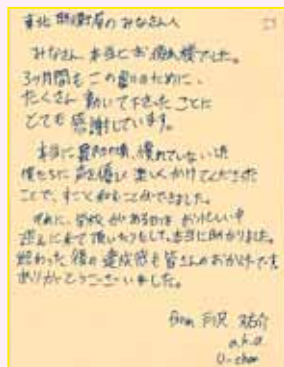 東北 防衛局のみなさんへ
みなさん 本当にお疲れ様でした。
3ヶ月間もこの劇のために、
たくさん 動いて下さったことに
とても 感謝しています。
本当に最初の頃、慣れていない
僕たちに 声を優しく 楽しく かけてくださった
ことで、すごく和むことができました。
学校がある日は お忙しい中
迎えに来て頂いたりもして、本当に助かりました。
終わった後の達成感も皆さんのおかげです
ありがとうございました。
from
a.k.a
U-chan